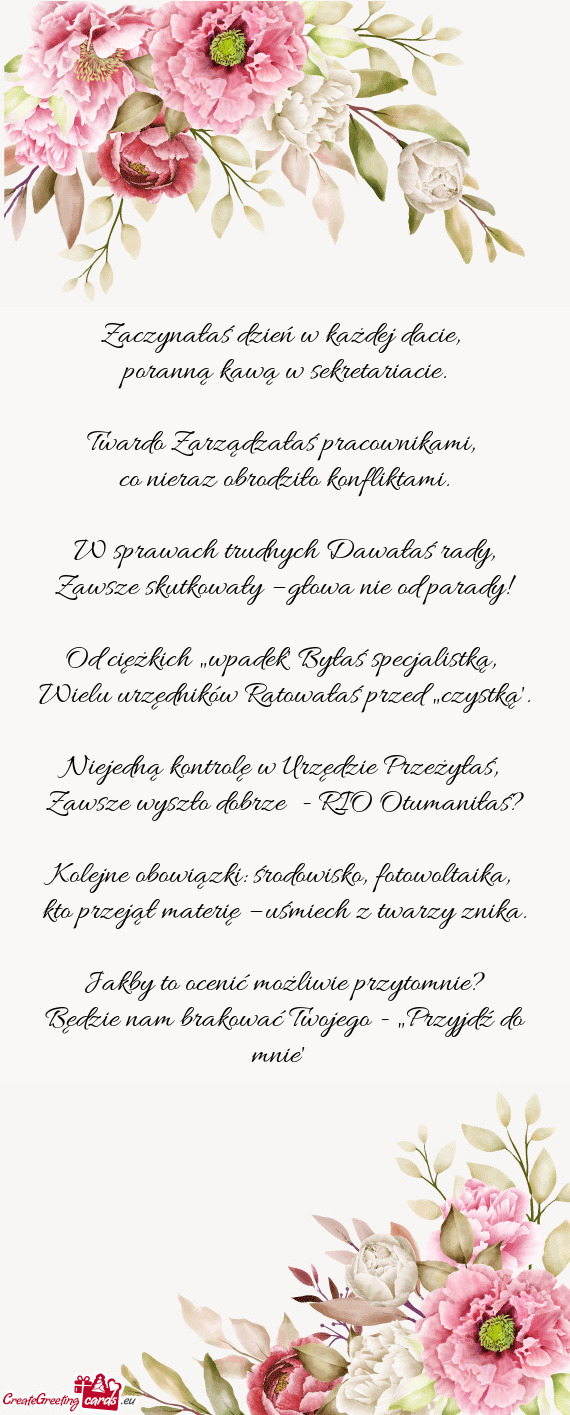 Zaczynałaś dzień w każdej dacie,
poranną kawą w sekretariacie.
Twardo Zarządzałaś pracownikami,
co nieraz obrodziło konfliktami.
W sprawach trudnych Dawałaś rady,
Zawsze skutkowały – głowa nie od parady!
Od ciężkich „wpadek" Byłaś specjalistką,
Wielu urzędników Ratowałaś przed „czystką".
Niejedną kontrolę w Urzędzie Przeżyłaś,
Zawsze wyszło dobrze - RIO Otumaniłaś?
Kolejne obowiązki: środowisko, fotowoltaika,
kto przejął materię – uśmiech z twarzy znika.
Jakby to ocenić możliwie przytomnie?
Będzie nam brakować Twojego - „Przyjdź do
mnie"
CreateGreeting cards .eu